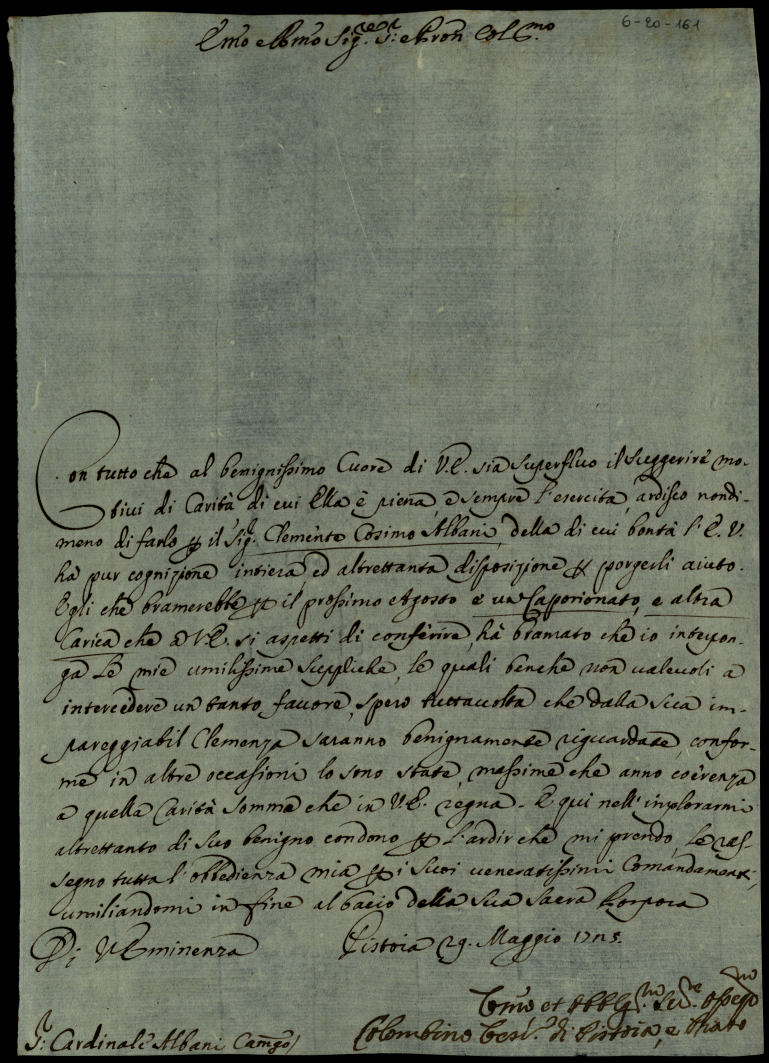 6-20-161
Emo e Rmo Sig.re Sr: e Pron Col.mo
Con tutto che al benignissimo Cuore di V.E. sia superfluo il suggerire mo-
tivi di Carità di cui Ella è piena, e sempre l'esercita, ardisco nondi-
meno di farlo p il Sigr. Clemente Cosimo Albani, della di cui bontà l'E.V.
ha pur cognizione intiera, ed altrettanta disposizione p porgerli aiuto.
Egli che bramerebbe p il prossimo Agosto e un Caporionato, e altra
Carica che a V.E. si aspetti di conferire, hà bramato che io interpon-
ga le mie umilissime suppliche, le quali benche non valevoli a
intercedere un tanto favore, spero tuttavolta che dalla sua im-
pareggiabil Clemenza saranno benignamente riguardate, confor-
me in altre occasioni lo sono state, massime che anno coèrenza
a quella Carità somma che in V.E. regna. E qui nell'implorarmi
altrettanto di suo benigno condono p l'ardir che mi prendo, le ras-
segno tutta l'obbedienza mia p i suoi veneratissimi Comandamenti,
umiliandomi in fine al bacio della sua Sacra Porpora
Di V Eminenza Pistoia 29. Maggio
Colombino Vesc.o di Pistoia, e Prato
Sr: Cardinale Albani Camgo/